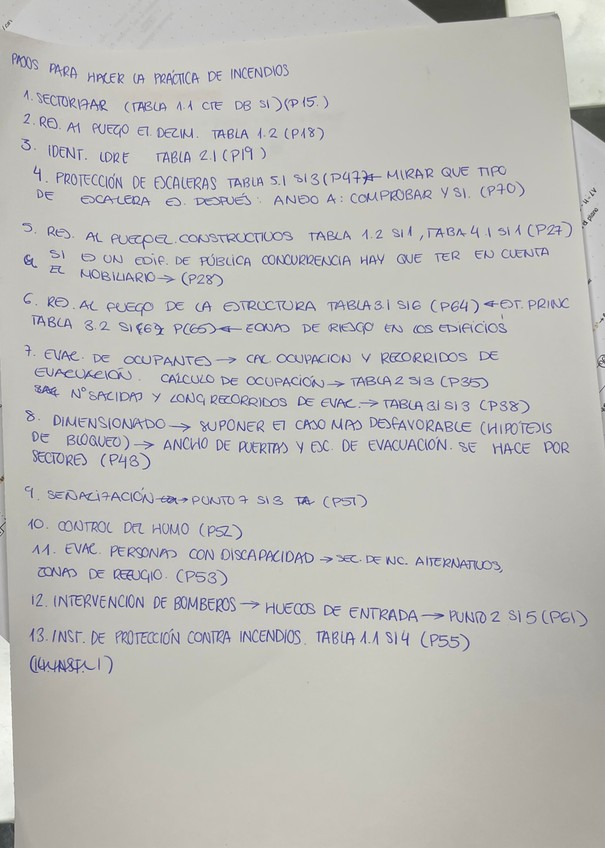 PASOS PARA HACER LA PRÁCTICA DE INCENDIOS
1. SECTORIZAR (TABLA 1.1 CTE DB SI) (P15.)
2. RES. AL FUEGO EL. DELIM. TABLA 1.2 (P18)
3. IDENT. LDRE TABLA 2.1 (P19)
4. PROTECCIÓN DE ESCALERAS TABLA 5.1 SI3 (P47) ← MIRAR QUE TIPO
DE ESCALERA ES. DESPUÉS: ANEJO A: COMPROBAR Y SI. (P70)
5. RES. AL FUEGO EL. CONSTRUCTIVOS TABLA 1.2 SI1, TABA 4.1 SI1 (P27)
SI ES UN EDIF. DE PÚBLICA CONCURRENCIA HAY QUE TER EN CUENTA
EL MOBILIARIO → (P28)
6. RES. AL FUEGO DE LA ESTRUCTURA TABLA 3.1 SI6 (P64) ← EST. PRINC
TABLA 3.2 SI6 P(65) ← ZONAS DE RIESGO EN LOS EDIFICIOS
7. EVAC. DE OCUPANTES → CAL. OCUPACION Y RECORRIDOS DE
EVACUACIÓN. CALCULO DE OCUPACIÓN → TABLA 2 SI3 (P35)
Nº SALIDAS Y LONG. RECORRIDOS DE EVAC. → TABLA 3.1 SI3 (P38)
8. DIMENSIONADO → SUPONER EL CASO MAS DESFAVORABLE (HIPÓTESIS
DE BLOQUEO) → ANCHO DE PUERTAS Y ESC. DE EVACUACIÓN. SE HACE POR
SECTORES (P43)
9. SEÑALIZACIÓN → PUNTO 7 SI3 (P51)
10. CONTROL DEL HUMO (P52)
11. EVAC. PERSONAS CON DISCAPACIDAD → SEC. DE INC. ALTERNATIVOS,
ZONAS DE REFUGIO. (P53)
12. INTERVENCIÓN DE BOMBEROS → HUECOS DE ENTRADA → PUNTO 2 SI5 (P61)
13. INST. DE PROTECCIÓN CONTRA INCENDIOS. TABLA 1.1 SI4 (P55)